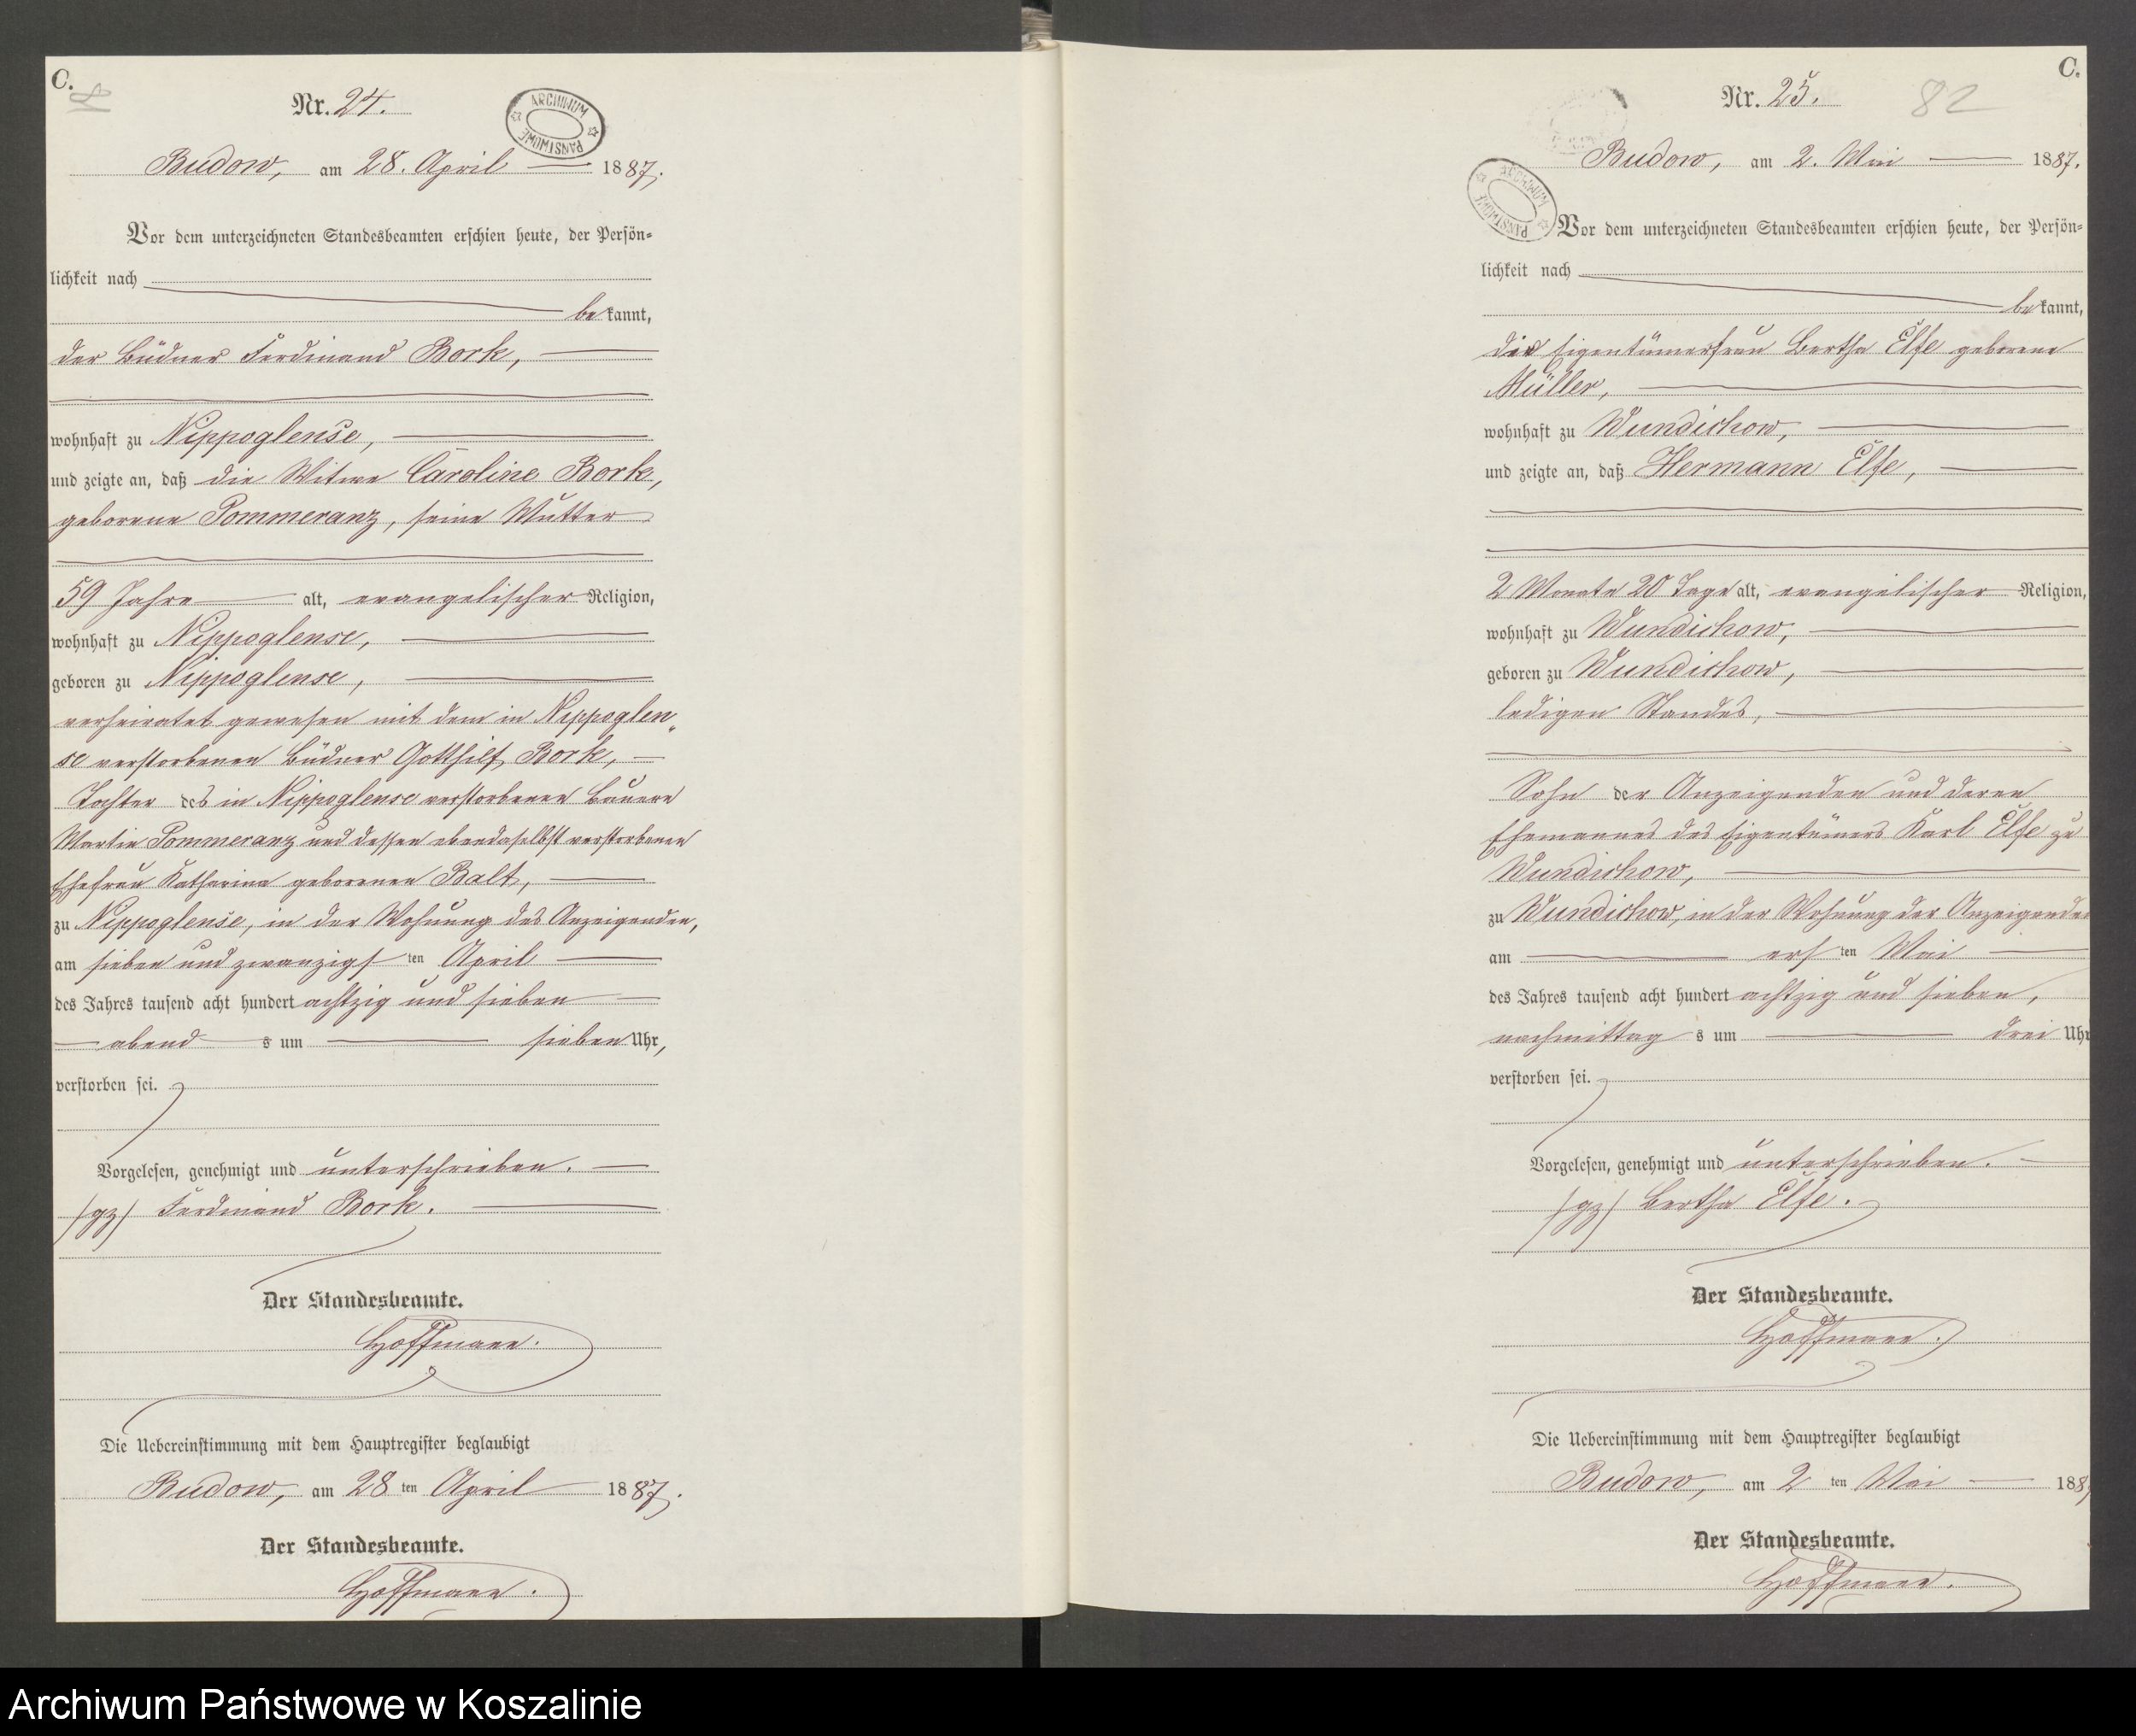 C.
Nr. 24.
ARCHIWUM PAŃSTWOWE
Budow, am 28. April 1887.
Vor dem unterzeichneten Standesbeamten erschien heute, der Persön=
lichkeit nach
bekannt,
der Büdner Ferdinand Bork,
wohnhaft zu Nippoglense,
und zeigte an, daß die Witwe Caroline Bork,
geborene Pommeranz, seine Mutter
59 Jahre alt, evangelischer Religion,
wohnhaft zu Nippoglense,
geboren zu Nippoglense,
verheiratet gewesen mit dem in Nippoglen„
se verstorbenen Büdner Gotthilf Bork,
Tochter des in Nippoglense verstorbenen Bauern
Martin Pommeranz und dessen ebendaselbst verstorbenen
Ehefrau Katharina geborenen Balt,
zu Nippoglense, in der Wohnung des Anzeigenden,
am sieben und zwanzigsten April
des Jahres tausend acht hundert achtzig und sieben
abends um sieben Uhr,
verstorben sei.
Vorgelesen, genehmigt und unterschrieben.
/gz/ Ferdinand Bork.
Der Standesbeamte.
Hoffmann.
Die Uebereinstimmung mit dem Hauptregister beglaubigt
Budow, am 28ten April 1887.
Der Standesbeamte.
Hoffmann.
C.
Nr. 25.
82
Budow, am 2. Mai 1887.
ARCHIWUM PAŃSTWOWE
Vor dem unterzeichneten Standesbeamten erschien heute, der Persön=
lichkeit nach
bekannt,
die Eigentümersfrau Bertha Elfe geborene
Müller,
wohnhaft zu Wundichow,
und zeigte an, daß Hermann Elfe,
2 Monate 20 Tage alt, evangelischer Religion,
wohnhaft zu Wundichow,
geboren zu Wundichow,
ledigen Standes,
Sohn der Anzeigenden und deren
Ehemannes des Eigentümers Karl Elfe zu
Wundichow,
zu Wundichow, in der Wohnung der Anzeigenden
am ersten Mai
des Jahres tausend acht hundert achtzig und sieben,
nachmittags um drei Uhr
verstorben sei.
Vorgelesen, genehmigt und unterschrieben.
/gz/ Bertha Elfe.
Der Standesbeamte.
Hoffmann.
Die Uebereinstimmung mit dem Hauptregister beglaubigt
Budow, am 2ten Mai 188
Der Standesbeamte.
Hoffmann.
Archiwum Państwowe w Koszalinie